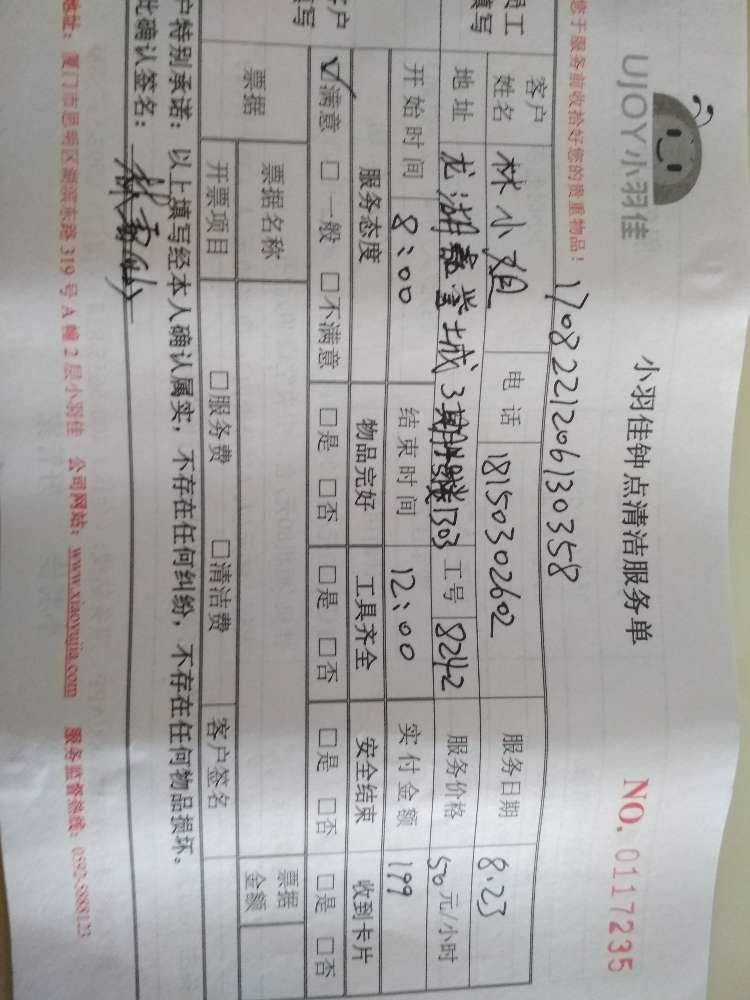 UJOY小羽佳
小羽佳钟点清洁服务单
NO. 0117235
您于服务前收拾好您的贵重物品！
1708221206130358
员工
填写
客户
姓名
林小姐
电话
18150302602
服务日期
8.23
地址
龙湖嘉誉城3期 1303
工号
8242
服务价格
50元/小时
开始时间
8:00
结束时间
12:00
实付金额
199
客户
填写
服务态度
物品完好
工具齐全
安全结束
收到卡片
☑满意 □一般 □不满意
□是 □否
□是 □否
□是 □否
□是 □否
票据
票据名称
票据
金额
开票项目
□服务费 □清洁费
客户签名
户特别承诺：以上填写经本人确认属实，不存在任何纠纷，不存在任何物品损坏。
此确认签名：
地址：厦门市思明区湖滨东路319号A幢2层小羽佳 公司网站：www.xiaoyujia.com 服务监督热线：0592-5888123